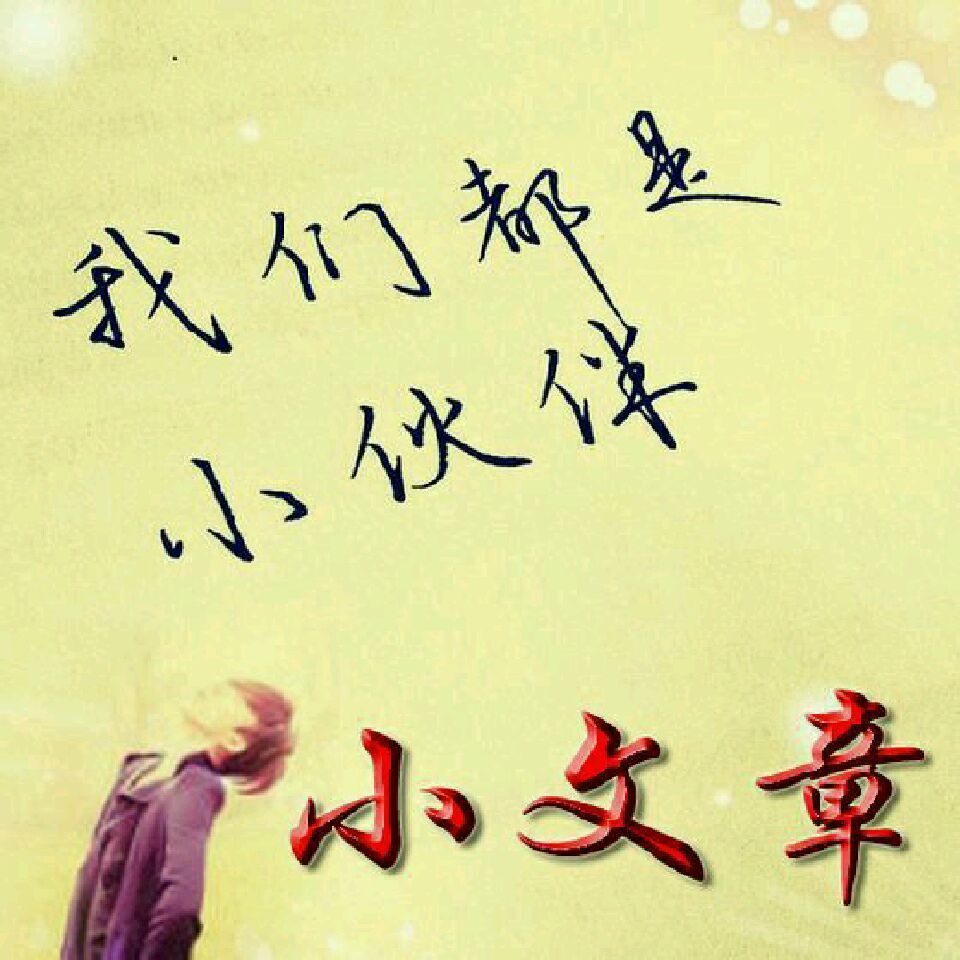 我们都是
小伙伴
小文章